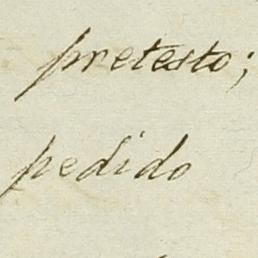 pretesto;
pedido